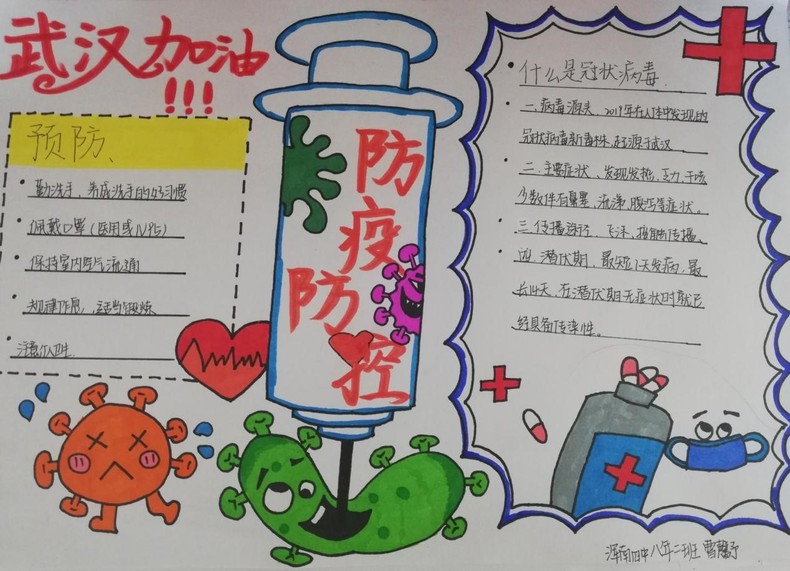 武汉加油
!!!
预防、
• 勤洗手、养成洗手的好习惯
• 佩戴口罩(医用或N95)
• 保持室内空气流通
• 规律作息,适当锻炼
注意个人卫生
防
疫
防
控
• 什么是冠状病毒.
一.病毒源头、2019年在人体中发现的
冠状病毒新毒株,起源于武汉、
二.主要症状、发现发抢、乏力、干咳
少数伴有鼻塞、流涕、腹泻等症状。
三.传播途径、飞沫、接触传播、
四.潜伏期、最短1天发病,最
长14天、在潜伏期无症状时就已
经具备传染性。
浑南四中八年二班